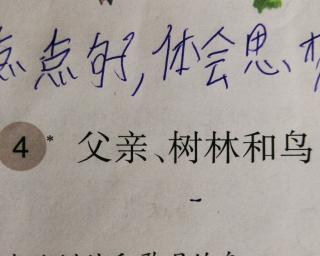 点句,体会思
4* 父亲、树林和鸟